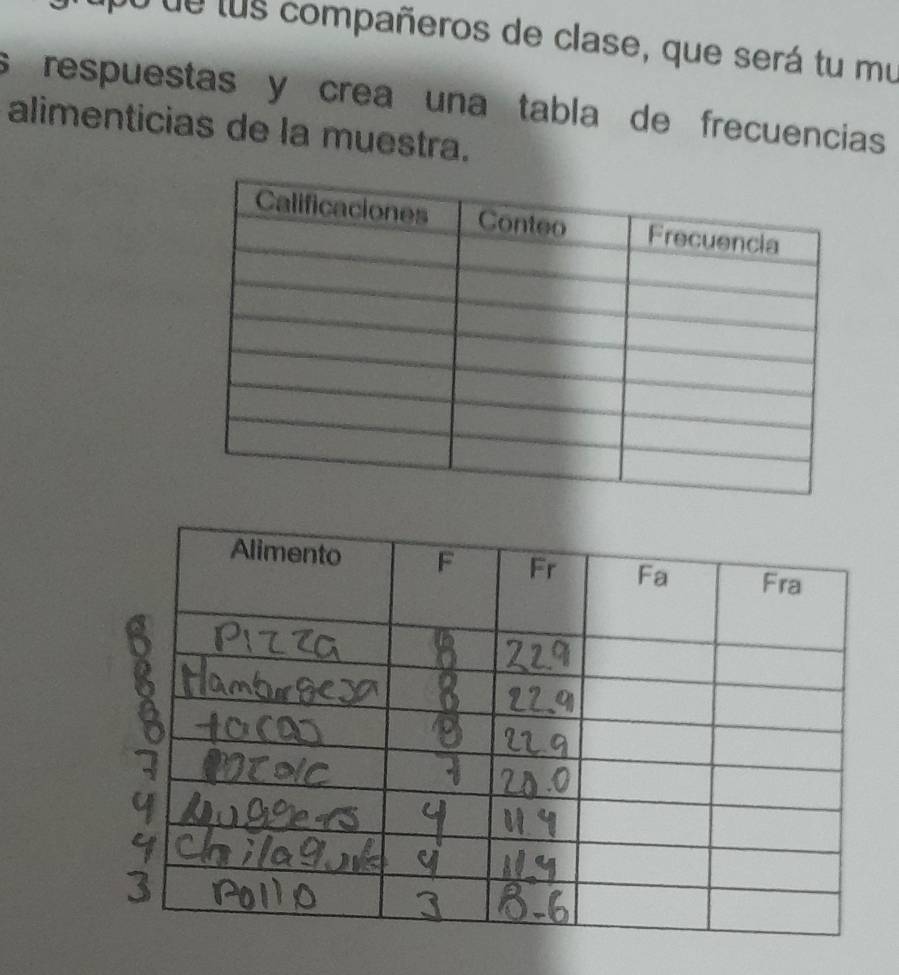 de tus compañeros de clase, que será tu mu
s respuestas y crea una tabla de frecuencias
alimenticias de la muestra.
Calificaciones Conteo Frecuencia
Alimento F Fr Fa Fra
8 Pizza 8 22.9
8 Hamburgesa 8 22.9
8 tacos 8 22.9
7 Pozole 7 20.0
4 Nuggets 4 11.4
4 Chilaquiles 4 11.4
3 Pollo 3 8.6